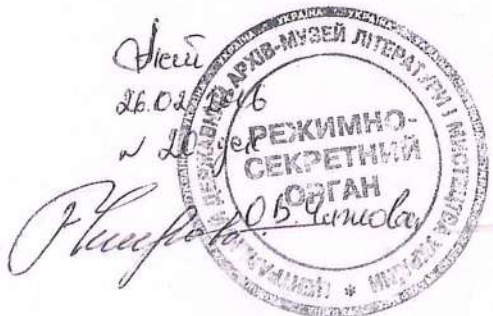 Акт
26.02.2016
УКРАЇНА * УКРАЇНА * УКРАЇНА
ЦЕНТРАЛЬНИЙ ДЕРЖАВНИЙ АРХІВ-МУЗЕЙ ЛІТЕРАТУРИ І МИСТЕЦТВА УКРАЇНИ *
РЕЖИМНО-
СЕКРЕТНИЙ
ОРГАН
О.В.